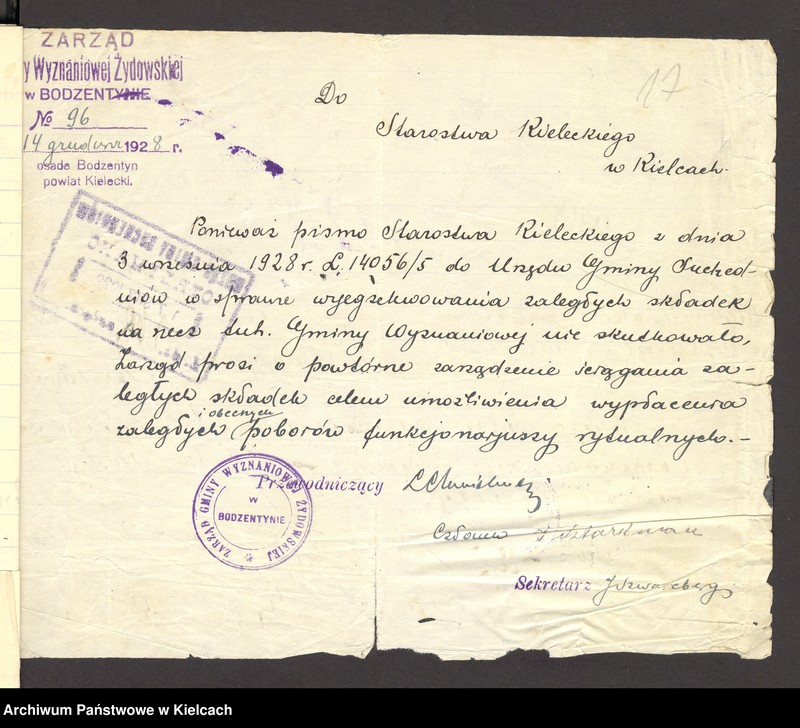 ZARZĄD
y Wyznaniowej Żydowskiej
w BODZENTYNIE
№ 96
14 grudnia 1928 r.
osada Bodzentyn
powiat Kielecki.
17
Do
Starostwa Kieleckiego
w Kielcach.
Ponieważ pismo Starostwa Kieleckiego z dnia
3 września 1928 r. L. 14056/5 do Urzędu Gminy Suched-
niów w sprawie wyegzekwowania zaległych składek
na rzecz tut. Gminy Wyznaniowej nie skutkowało,
Zarząd prosi o powtórne zarządzenie ściągania za-
ległych składek celem umożliwienia wypłacenia
zaległych i obecnych poborów funkcjonarjuszy rytualnych.-
Przewodniczący
Członek
Sekretarz J Szwarcberg
ZARZĄD GMINY WYZNANIOWEJ ŻYDOWSKIEJ
W
BODZENTYNIE
Archiwum Państwowe w Kielcach